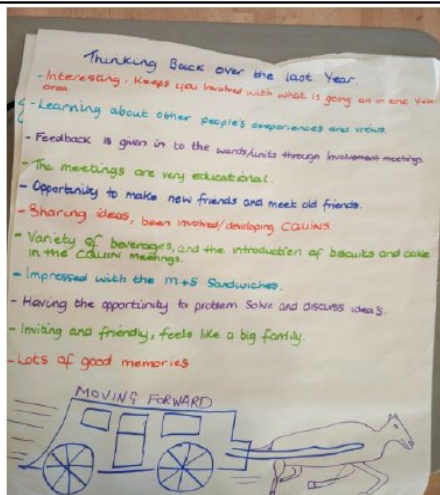 Thinking Back over the last Year.
- Interesting, Keeps you Involved with what is going on in the
area
- Learning about other people's experiences and views.
- Feedback is given in to the wards/units through Involvement meetings.
- The meetings are very educational.
- Opportunity to make new friends and meet old friends.
- Sharing ideas, been involved/developing CQUINS
- Variety of beverages, and the introduction of biscuits and cake
in the CQUIN meetings.
- Impressed with the M+S Sandwiches.
- Having the opportunity to problem solve and discuss idea's.
- Inviting and friendly, feels like a big family.
- Lots of good memories
MOVING FORWARD